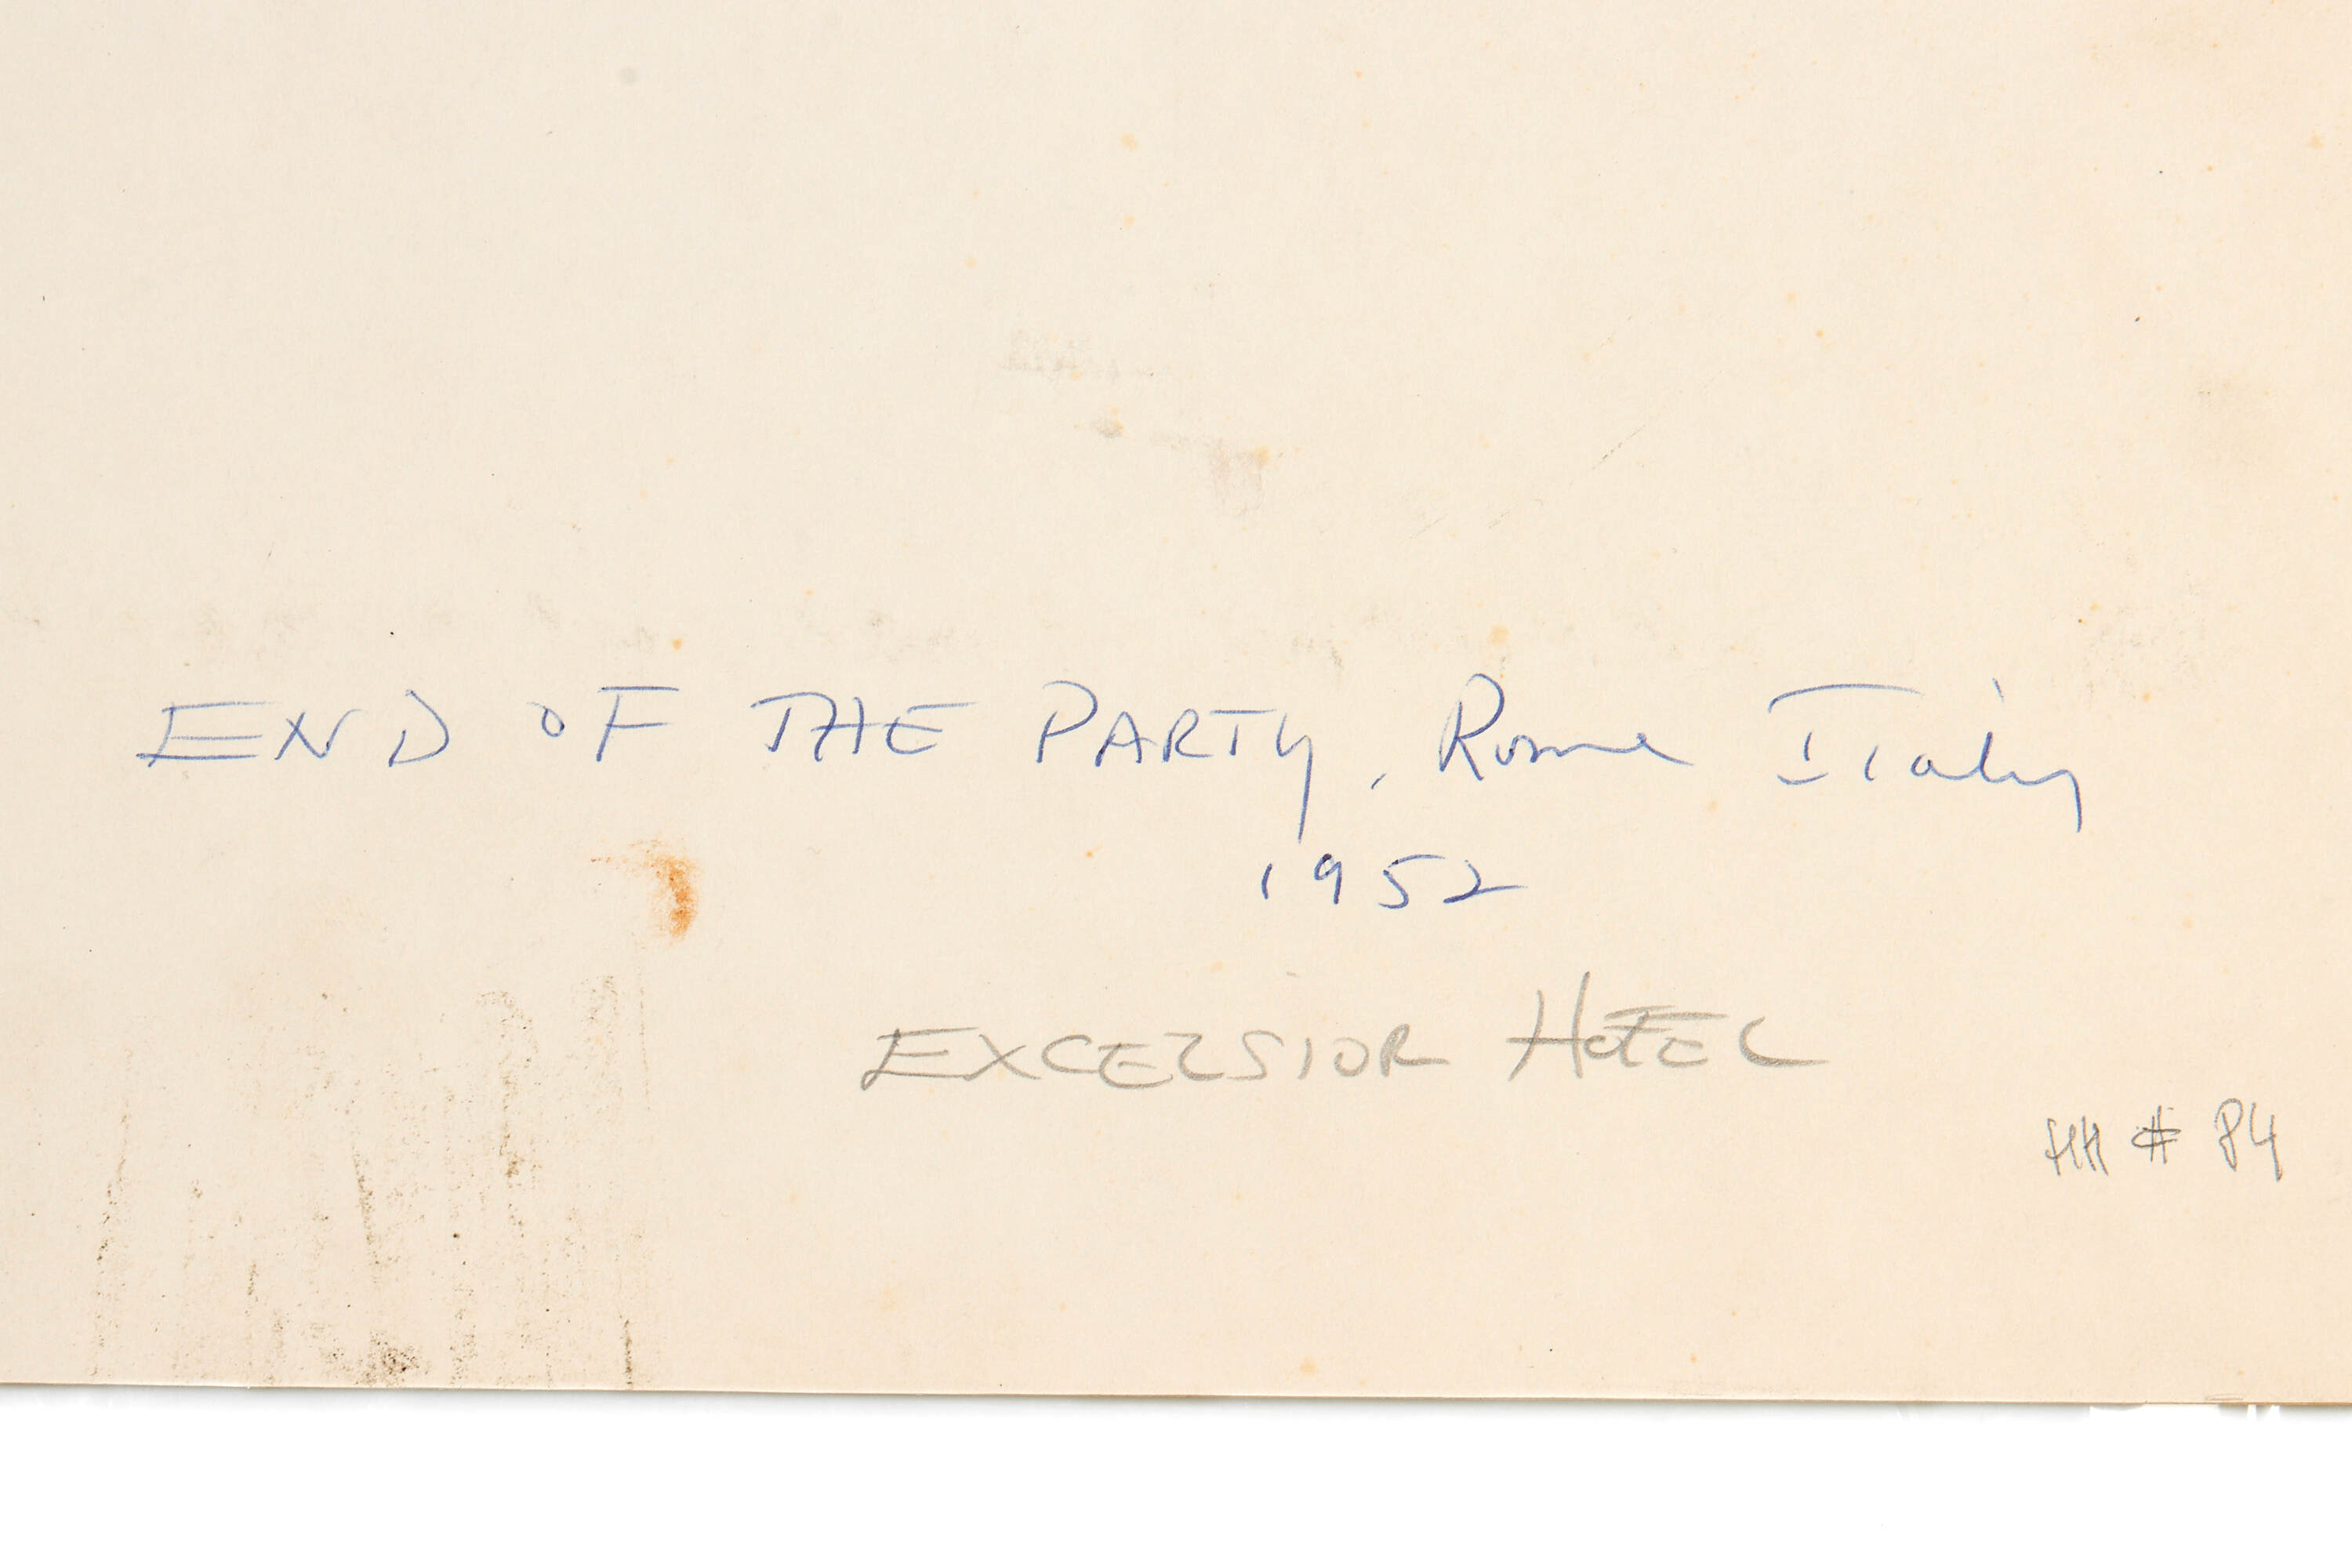 END OF THE PARTY, Rome Italy
1952
EXCELSIOR HOTEL
HH # 84